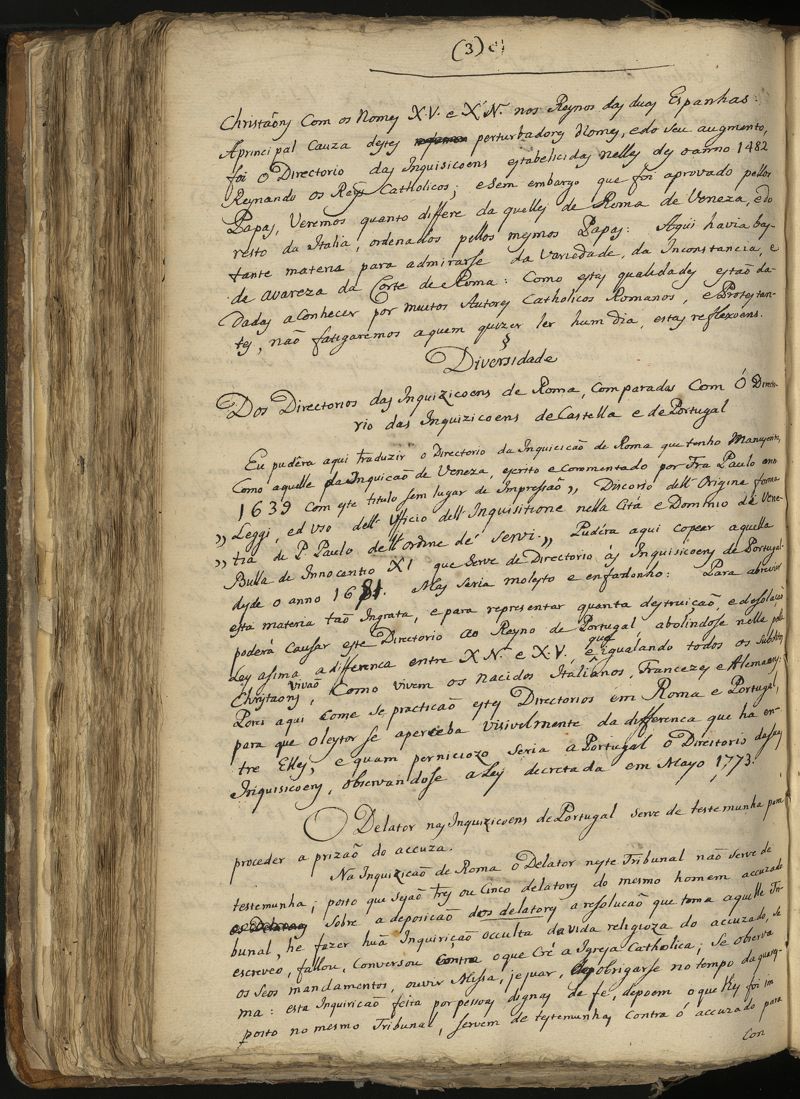 (3)
Christaõns Com os Nomes X.V. e X.N. nos Reynos das duas Espanhas:
A principal Cauza destes perturbadores Nomes, e do seu augmento,
foi o Directorio das Inquisicoens estabelicidas nelles des o anno 1482
Reynando os Reys Catholicos; e sem embargo que foi aprovado pellos
Papas, Veremos quanto differe da quelles de Roma de Veneza, e do
resto da Italia, ordenados pellos mesmos Papas: Aqui havia bas-
tante materia para admirarse da Variedade, da Inconstancia, e
de avareza da Corte de Roma: Como estas qualidades estaõ da-
dadas a Conhecer por muitos Autores Catholicos Romanos, e Protestan-
tes, naõ fatigaremos a quem quizer ler hum dia, estas reflexoens.
§
Diversidade
Dos Directorios das Inquizicoens de Roma, Comparadas Com Ó Directo-
rio das Inquizicoens de Castella e de Portugal
Eu pudéra aqui traduzir o Directorio da Inquicicaõ de Roma que tenho Manuscrito,
Como aquelle da Inquicaõ de Veneza, escrito e Commentado por Fra Paulo anno
1639 Com este titulo sem lugar de Impressaõ ,, Discorso dell'Origine forma
,, Leggi, ed uso dell'Ufficio dell'Inquisitione nella Cità e Dominio de Vene-
,, tia de P. Paulo dell'ordine de' Servi. ,, Pudéra aqui copear aquella
Bulla de Innocentio XI que Serve de Directorio ás Inquisicoens de Portugal
desde o anno 1681. Mas seria molesto e enfadonho: Para abreviar
esta materia taõ Ingrata, e para representar quanta destruiçaõ, e desolacaõ
poderá Causar este Directorio ao Reyno de Portugal, abolindose nelle pella
Ley asima a differenca entre X.N. e X.V. e igualando todos os subditos
Christaons, que vivaõ Como vivem os nacidos Italianos, Francezes e Alemaens:
Porei aqui Come se practicaõ estes Directorios em Roma e Portugal,
para que o leytor se aperceba visivelmente da differenca que ha en-
tre Elles; e quam perniciozo seria a Portugal o Directorio das suas
Inquisicoens, observandose a Ley decretada em Mayo 1773.
O Delator nas Inquizicoens de Portugal serve de testemunha para
proceder a prizaõ do accuza.
Na Inquizicaõ de Roma o Delator neste Tribunal naõ serve de
testemunha; posto que sejaõ tres ou Cinco delatores do mesmo homem accuzado
Sobre a deposicaõ dos delatores a resolucaõ que toma aquelle Tri-
bunal, he fazer huã Inquiriçaõ occulta da vida religioza do accuzado, se
escreveo, fallou, Conversou Contra o que Cré a Igreja Catholica; Se observa
os seos mandamentos, ouvir Missa, jejuar, desobrigarse no tempo da quares-
ma: esta Inquiricaõ feita por pessoas dignas de fe, depoem o que lhes foi im
posto no mesmo Tribunal, servem de testemunhas Contra ó accuzado para
Con